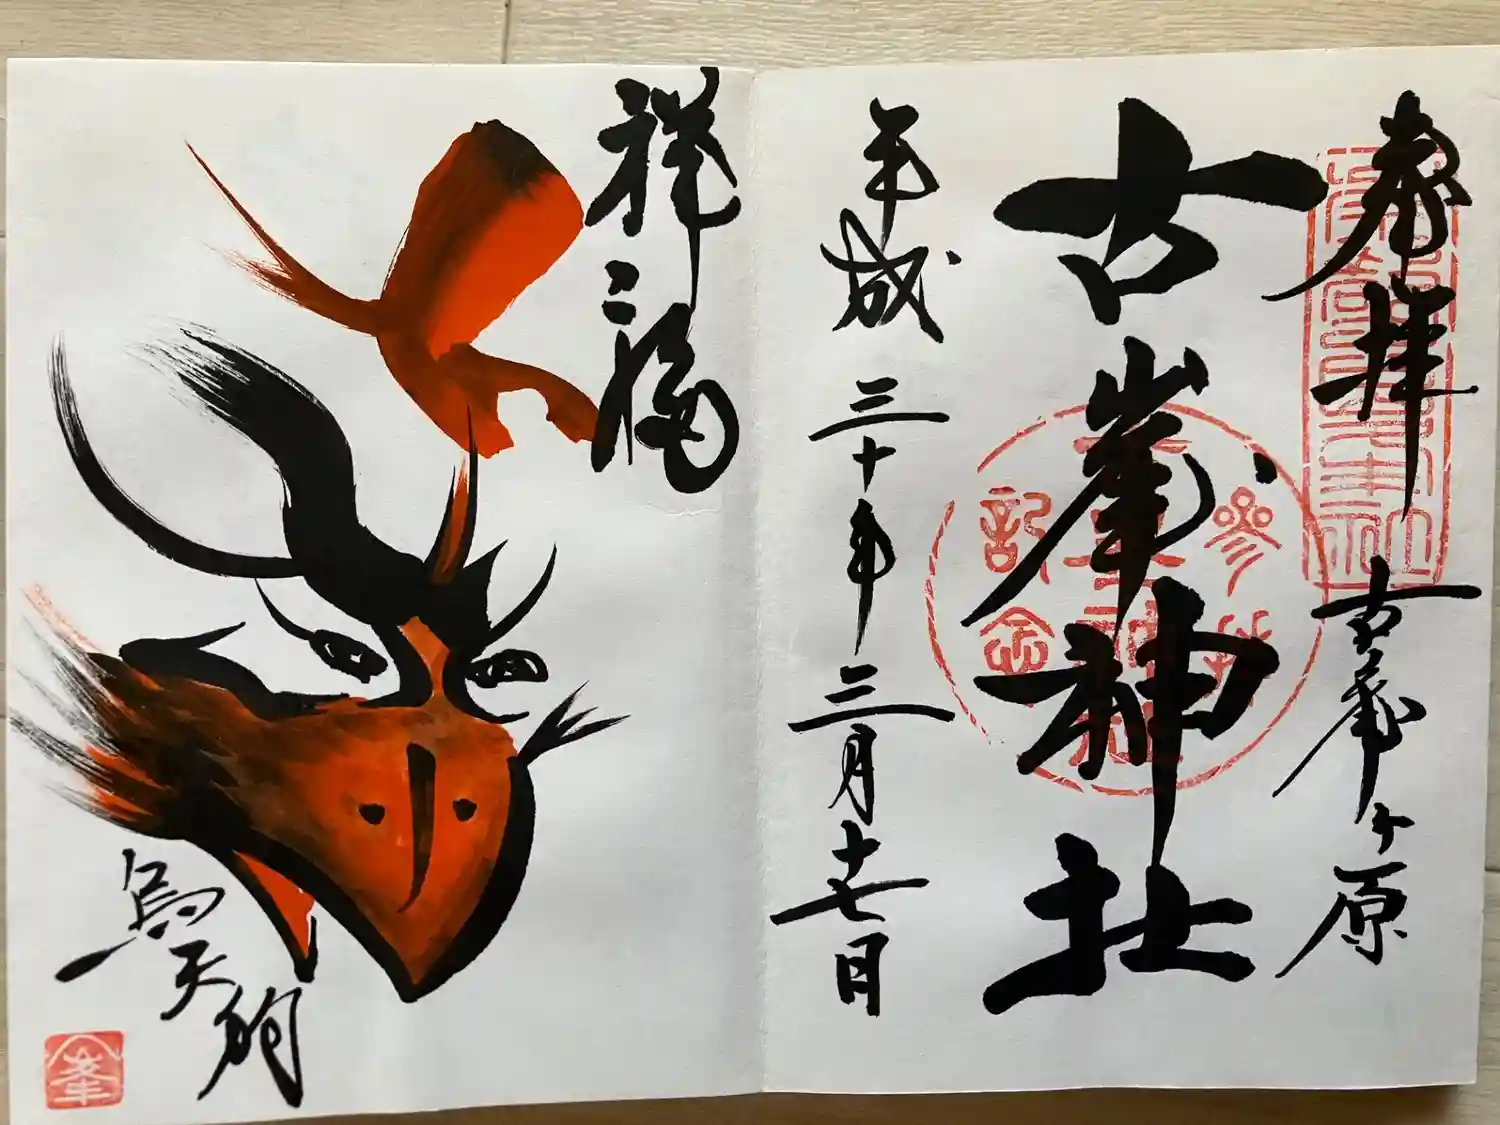 奉拝
古峯ヶ原
古峯神社
参拝
記念
平成三十年三月十七日
祥福
烏天狗
峯